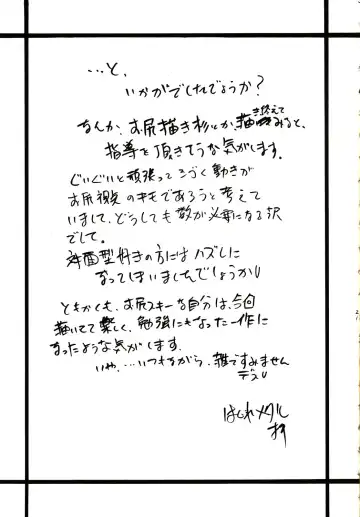 …と、
いかがでしたでしょうか?
なんか、お尻描き杉とか、描き終えてみると、
指導を頂きそうな気がします。
ぐいぐいと頑張って3づく動きが
お尻視点のキモであろうと考えて
いまして、どうしても数が必要になる訳
でして。
対面型好きの方にはハズレに
なってしまいましたでしょうか
ともかくも、お尻スキーな自分は、今回
描いてて楽しく、勉強にもなった一作に
なったような気がします。
いや、…いつもながら、雑ですみません
デス
はぐれメタル